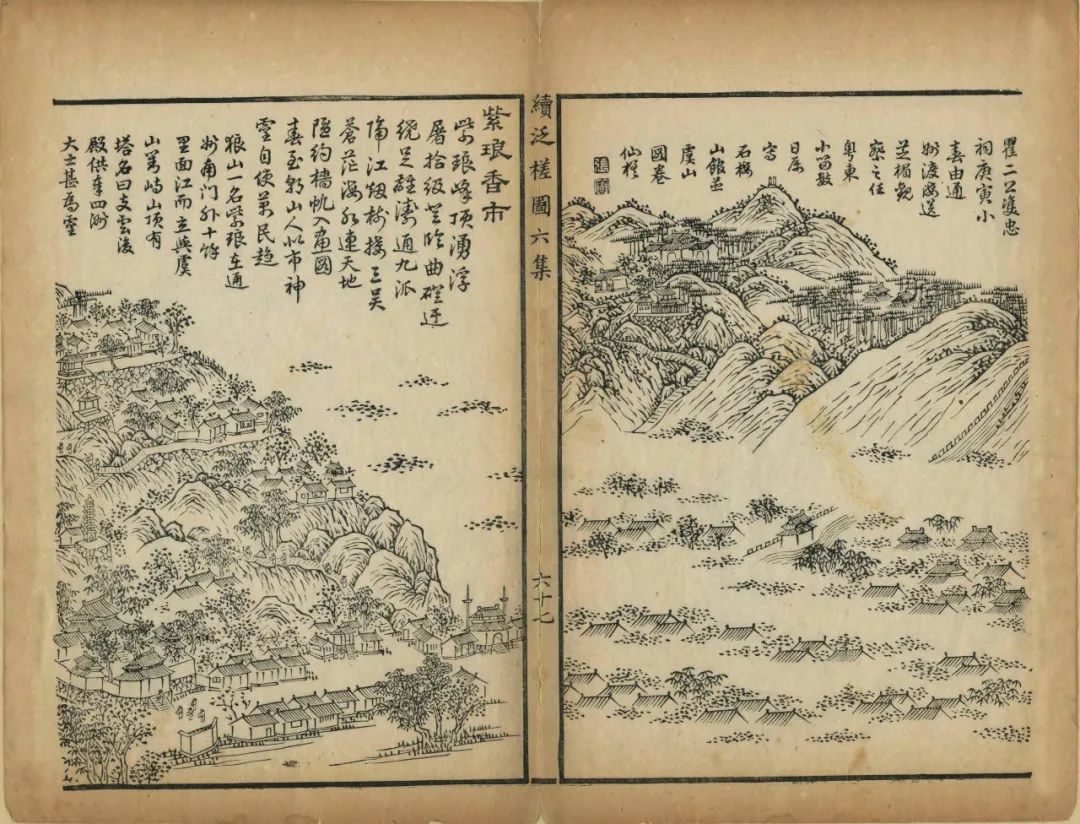 瞿二公雙忠
祠庚寅小
春由通
州渡海送
芝楣觀
察之任
粵東
小留數
日屬
寫
石梅
山館並
虞山
圖卷
仙槎
張寶
續泛槎圖六集
六十七
紫琅香市
紫琅峰頂湧浮
屠拾級登臨曲磴迂
繞足雄濤通九派
隔江烟樹接三吴
蒼茫海水連天地
隱約檣帆入畫圖
春至朝山人似市神
靈自使萬民趋
狼山一名紫琅在通
州南門外十餘
里面江而立與虞
山對峙山頂有
塔名曰支雲後
殿供奉四洲
大士甚為靈